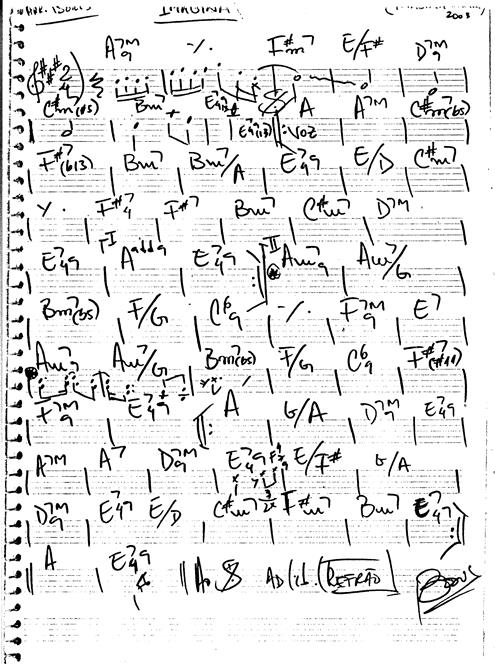 IMAGINA
2003
A7M9 ·/. F#m7 E/F# D7M9
C#m7(b5) Bm7 A A7M C#m7(b5)
E749(13) VOZ
F#7(b13) Bm7 Bm7/A E749 E/D C#m7
·/. F#74 F#7 Bm7 C#m7 D7M
E749 I Aadd9 E749 II Am79 Am7/G
Bm7(b5) F/G C69 ·/. F7M9 E7
Am79 Am7/G Bm7(b5) F/G C69 F#7(#11)
F7M9 E749 A G/A D7M9 E749
A7M A7 D7M9 E749 E/F# G/A
D7M9 E/D C#m7 F#m7 Bm7 E749
A E749 Ao AD LIB. (REFRÃO)